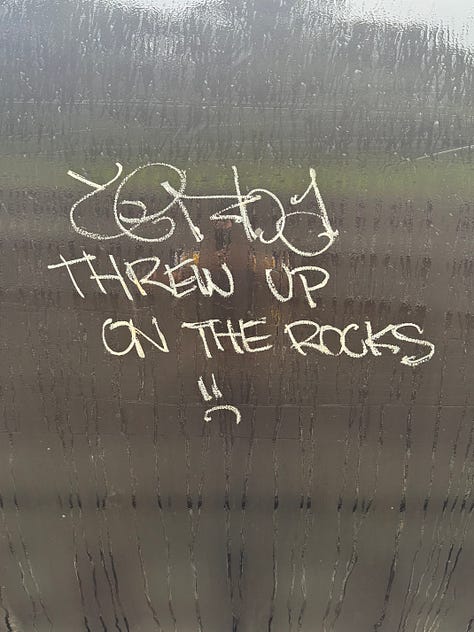 THREW UP
ON THE ROCKS